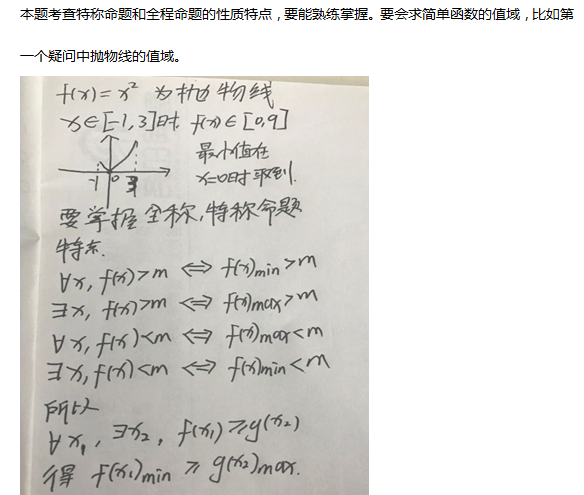 本题考查特称命题和全程命题的性质特点，要能熟练掌握。要会求简单函数的值域，比如第
一个疑问中抛物线的值域。
f(x)=x² 为抛物线
x∈[-1,3]时 f(x)∈[0,9]
最小值在
x=0时取到.
-1 0 3
要掌握全称,特称命题
特点.
∀x, f(x)>m ⇔ f(x)min>m
∃x, f(x)>m ⇔ f(x)max>m
∀x, f(x)<m ⇔ f(x)max<m
∃x, f(x)<m ⇔ f(x)min<m
所以
∀x₁, ∃x₂, f(x₁)≥g(x₂)
得 f(x₁)min ≥ g(x₂)max.